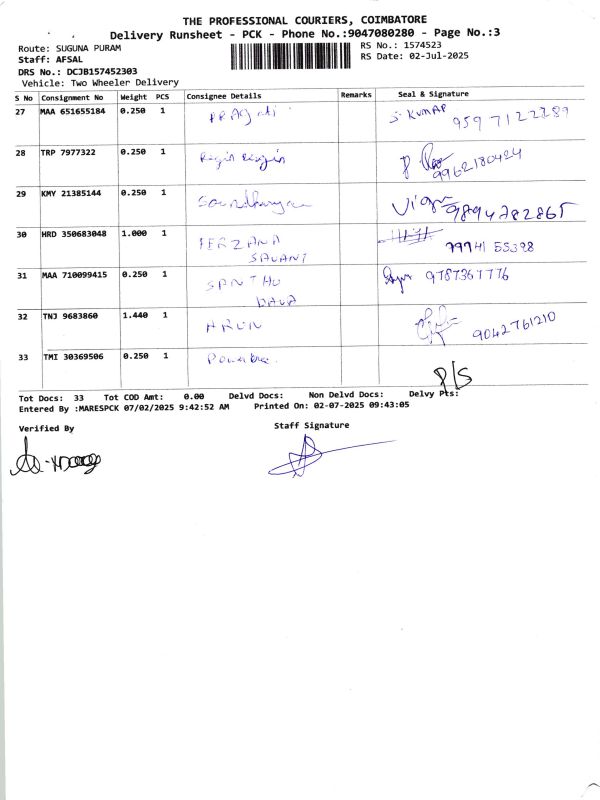 THE PROFESSIONAL COURIERS, COIMBATORE
Delivery Runsheet - PCK - Phone No.:9047080280 - Page No.:3
Route: SUGUNA PURAM
RS No.: 1574523
Staff: AFSAL
RS Date: 02-Jul-2025
DRS No.: DCJB157452303
Vehicle: Two Wheeler Delivery
S No Consignment No Weight PCS Consignee Details Remarks Seal & Signature
27 MAA 651655184 0.250 1 PRAgati S. KUMAR
28 TRP 7977322 0.250 1 9962180424
29 KMY 21385144 0.250 1 9894782865
30 HRD 350683048 1.000 1 FERZANA SAVANT 79941 55328
31 MAA 710099415 0.250 1 SANTHU 9787367776
32 TNJ 9683860 1.440 1 ARUN 9042761210
33 TMI 30369506 0.250 1
P/S
Tot Docs: 33 Tot COD Amt: 0.00 Delvd Docs: Non Delvd Docs: Delvy Pts:
Entered By :MARESPCK 07/02/2025 9:42:52 AM Printed On: 02-07-2025 09:43:05
Verified By
Staff Signature